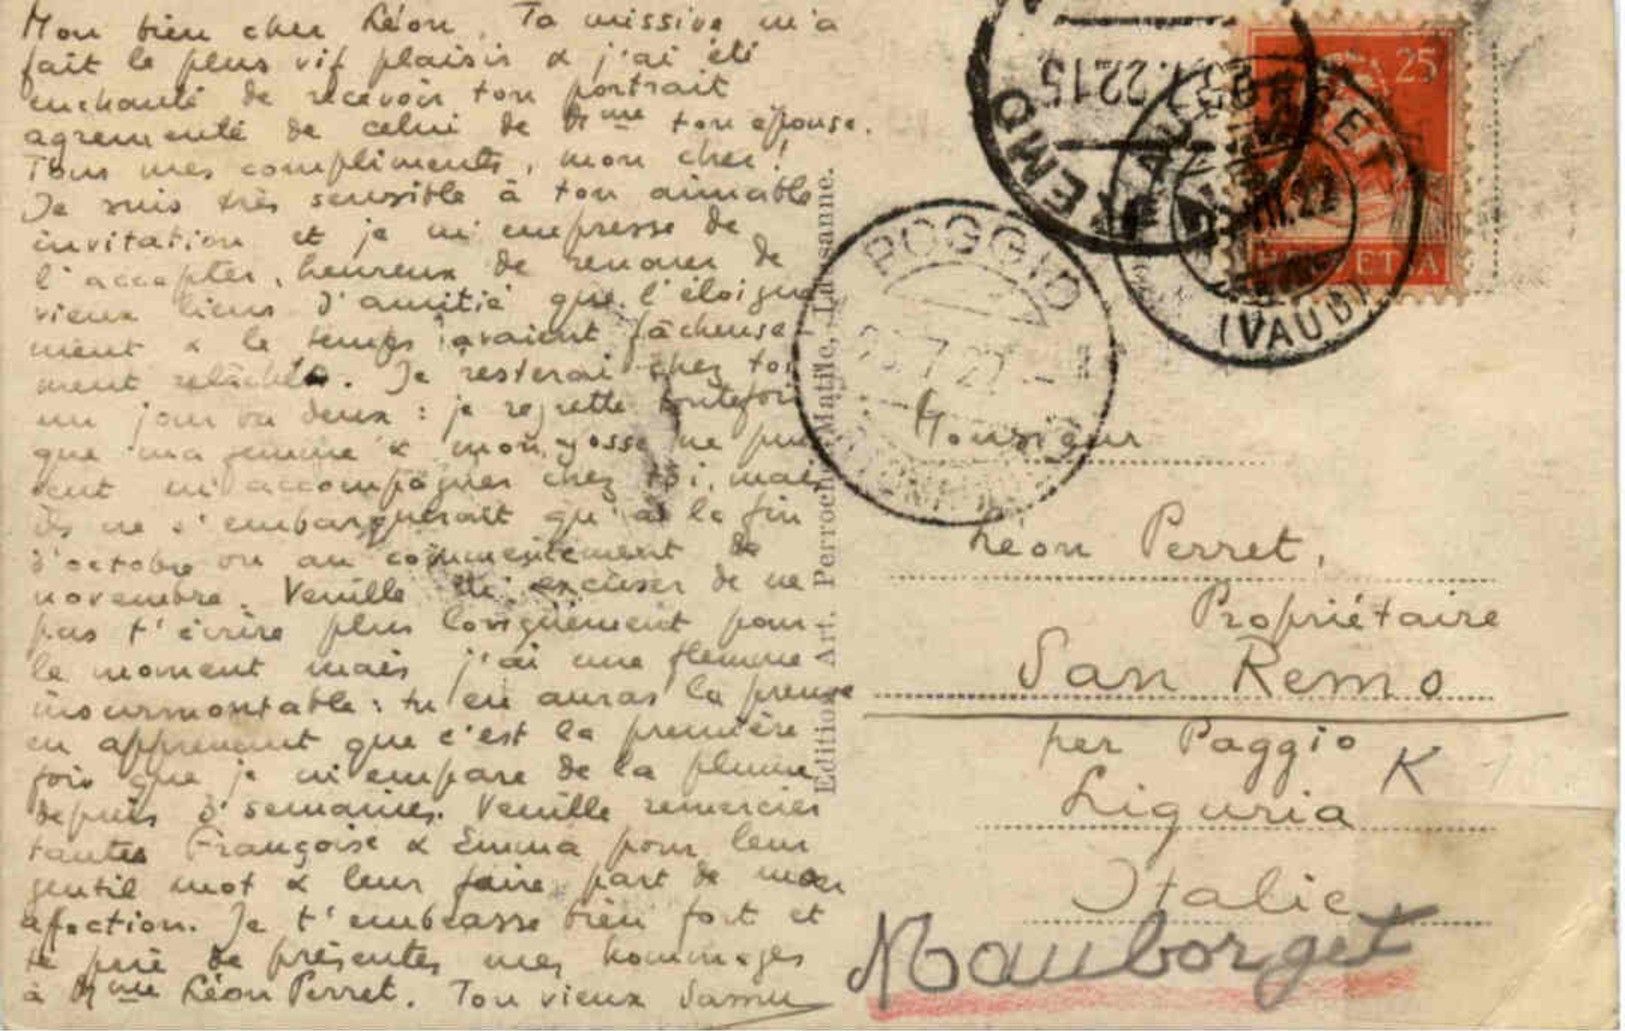 Mon bien cher Léon, Ta missive m'a
fait le plus vif plaisir & j'ai été
enchanté de recevoir ton portrait
agrementé de celui de Mme ton épouse.
Tous mes compliments, mon cher!
Je suis très sensible à ton aimable
invitation et je m'empresse de
l'accepter, heureux de renouer de
vieux liens d'amitié que l'éloigne
ment & le temps avaient fâcheuse-
ment relâchés. Je resterai chez toi
un jour ou deux : je regrette toutefois
que ma femme & mon gosse ne puis
sent m'accompagner chez toi, mais
ils ne s'embarqueront qu'à la fin
d'octobre ou au commencement de
novembre. Veuille m'excuser de ne
pas t'écrire plus longuement pour
le moment mais j'ai une flemme
insurmontable : tu en auras la preuve
en apprenant que c'est la première
fois que je m'empare de la plume
depuis 3 semaines. Veuille remercier
tantes Françoise & Emma pour leur
gentil mot & leur faire part de mon
affection. Je t'embrasse bien fort et
te prie de présenter mes hommages
à Mme Léon Perret. Ton vieux Samu
Edition Art. Perrochet-Matile, Lausanne.
25
HELVETIA
REMO
22.15
(VAUD)
POGGIO
Monsieur
Léon Perret,
Propriétaire
San Remo
per Paggio
K
Liguria
Italie
Mauborget